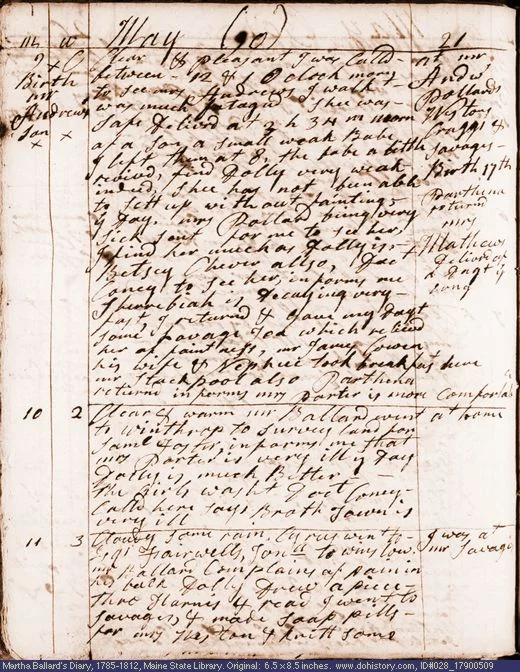 m w May (90) 21
9 1 Clear & pleasant I was Calld at mr
Birth between 12 & 1 O Clock morn Andw
mr to see mrs Andrews I walkt Bollards
Andrews was much fatagd shee was Westons
Son safe Delivd at 2 h 3 4 m morn Craggs &
x x of a son a small weak Babe Savages
I left them at 8, the babe a little Birth 17th
revivd, find Dolly very weak
indeed, shee has not been able Parthena
to sett up without fainting returnd
to Day. mrs Ballad being very mrs
sick sent for me to see her Mathews
I find her much as Dolly is Deliverd of
Betsey Chever allso, Doct a Dagt &
Coney to see her informs me
is Decaying very
fast I returnd & gave my Dagt
some Savage Tea which relievd
her of faintness, mr James Cowen
his wife & Nephue took breakfast here
mr Stackpool also Parthena
returnd informs mrs Porter is more Comfortab
10 2 Clear & warm mr Ballard went at home
to Winthrop to survey land for
Saml informs me that
mrs Porter is very ill to Day
Dolly is much Bitter
the Girls washt Doct Coney
Calld here says Broth Town is
very ill
11 3 Cloudy some rain. Cyrus went to I was at
Fairwells, Jona to Winslow mr Savages
mr Ballard Complains of pain in
his back Dolly Drew a piece
thro Harnes & read I went to
Savages, & made soap pills
for mrs Weston & with some
Martha Ballard's Diary, 1785-1812, Maine State Library. Original: 6.5 x 8.5 inches. www.dohistory.org, ID#028_17900509